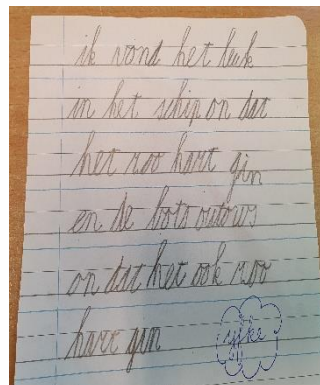 ik vond het leuk
in het schip on dat
het zoo hart gin
en de bots outows
on dat het ook zoo
hart gin
yfke